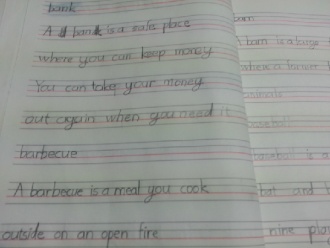 bank
A bank is a safe place
where you can keep money
You can take your money
out again when you need it
barbecue
A barbecue is a meal you cook
outside on an open fire
barn
barn is a large
where a farmer
animals
baseball
baseball is a
bat and
nine